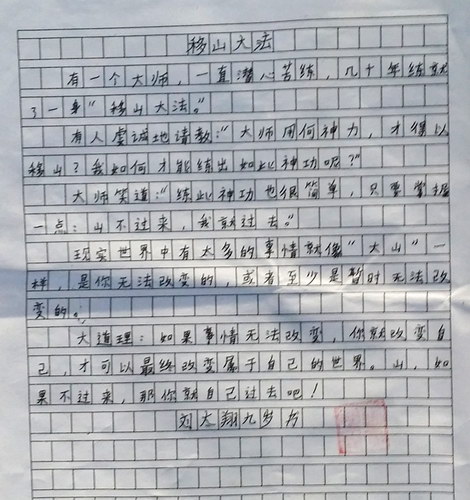 移山大法
有一个大师，一直潜心苦练，几十年练就
了一身“移山大法。”
有人虔诚地请教：“大师用何神力，才得以
移山？我如何才能练出如此神功呢？”
大师笑道：“练此神功也很简单，只要掌握
一点：山不过来，我就过去。”
现实世界中有太多的事情就像“大山”一
样，是你无法改变的，或者至少是暂时无法改
变的。
大道理：如果事情无法改变，你就改变自
己，才可以最终改变属于自己的世界。山，如
果不过来，那你就自己过去吧！
刘大翔九岁